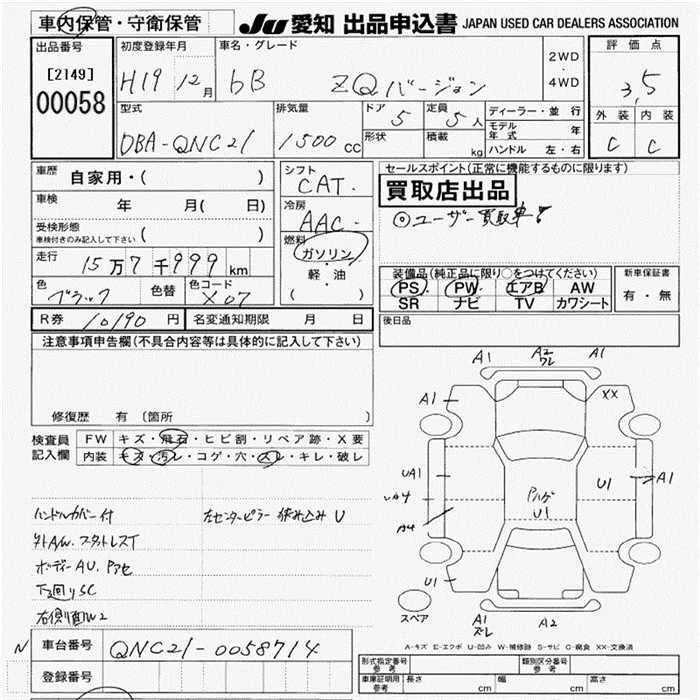 車内保管・守衛保管
JU 愛知 出品申込書 JAPAN USED CAR DEALERS ASSOCIATION
出品番号
[2149]
00058
初度登録年月
H19 12月
車名・グレード
bB ZQバージョン
2WD
・
4WD
評価点
3,5
外装 内装
C C
型式
DBA-QNC21
排気量
1500cc
ドア 5
定員 5人
形状
積載 kg
ディーラー・並行
モデル年式 年
ハンドル 左・右
車歴 自家用・( )
車検 年 月( 日)
受検形態
車検付きのみ記入して下さい ( )
走行 15万7千999km
色 ブラック
色替
色コード X07
シフト
CAT.
冷房
AAC.
燃料
ガソリン
・
軽・油
( )
セールスポイント(正常に機能するものに限ります)
買取店出品
◎ユーザー買取車!
装備品(純正品に限り○をつけてください)
PS PW エアB AW
SR ナビ TV カワシート
新車保証書
有・無
R券 10190円
名変通知期限 月 日
後日品
注意事項申告欄(不具合内容等は具体的に記入して下さい)
修復歴 有(箇所 )
検査員記入欄
FW キズ・飛石・ヒビ割・リペア跡・X要
内装 キズ・汚レ・コゲ・穴・スレ・キレ・破レ
ハンドルカバー付
左センターピラー 挟み込み U
外A/W. スタットレスT
ボデーAU. Pアセ
下回りSC
右側面W2
A1 A2 A1
ワレ
A1 XX
UA1
A4
A4
Pハゲ
U1
U1
A1
U1
スペア
A1
ズレ
A2
A-キズ E-エクボ U-凹み W-補修跡 S-サビ C-腐食 XX-交換済
N
車台番号 QNC21-0058714
登録番号
形式指定番号
参考
類別区分番号
参考
車庫証明用
参考
長さ cm
幅 cm
高さ cm